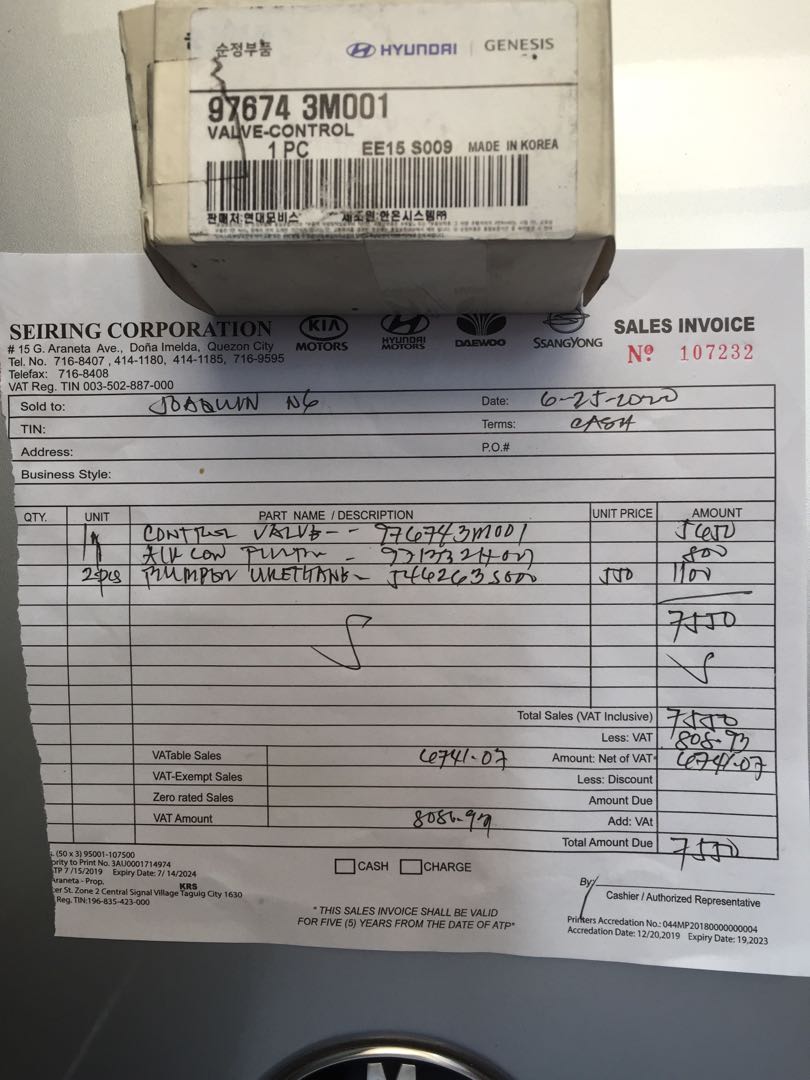 순정부품 HYUNDAI | GENESIS
97674 3M001
VALVE-CONTROL
1 PC EE15 S009 MADE IN KOREA
판매처:현대모비스 제조원:한온시스템㈜
SEIRING CORPORATION
# 15 G. Araneta Ave., Doña Imelda, Quezon City
Tel. No. 716-8407 , 414-1180, 414-1185, 716-9595
Telefax: 716-8408
VAT Reg. TIN 003-502-887-000
KIA MOTORS
HYUNDAI MOTORS
DAEWOO
SSANGYONG
SALES INVOICE
Nº 107232
Sold to: JOAQUIN NG Date: 6-25-2020
TIN: Terms: CASH
Address: P.O.#
Business Style:
QTY. UNIT PART NAME / DESCRIPTION UNIT PRICE AMOUNT
CONTROL VALVE -- 976743M001 5650
AIR CON 800
2 pcs URETHANE - 550 1100
7550
Total Sales (VAT Inclusive) 7550
Less: VAT 808.93
VATable Sales 6741.07 Amount: Net of VAT 6741.07
VAT-Exempt Sales Less: Discount
Zero rated Sales Amount Due
VAT Amount Add: VAt
Total Amount Due 7550
CASH CHARGE
(50 x 3) 95001-107500
to Print No. 3AU0001714974
7/15/2019 Expiry Date: 7/ 14/2024
Araneta - Prop. KRS
St. Zone 2 Central Signal Village Taguig City 1630
Reg. TIN:196-835-423-000
* THIS SALES INVOICE SHALL BE VALID
FOR FIVE (5) YEARS FROM THE DATE OF ATP*
By:
Cashier / Authorized Representative
Printers Accredation No.: 044MP20180000000004
Accredation Date: 12/20,2019 Expiry Date: 19,2023
M